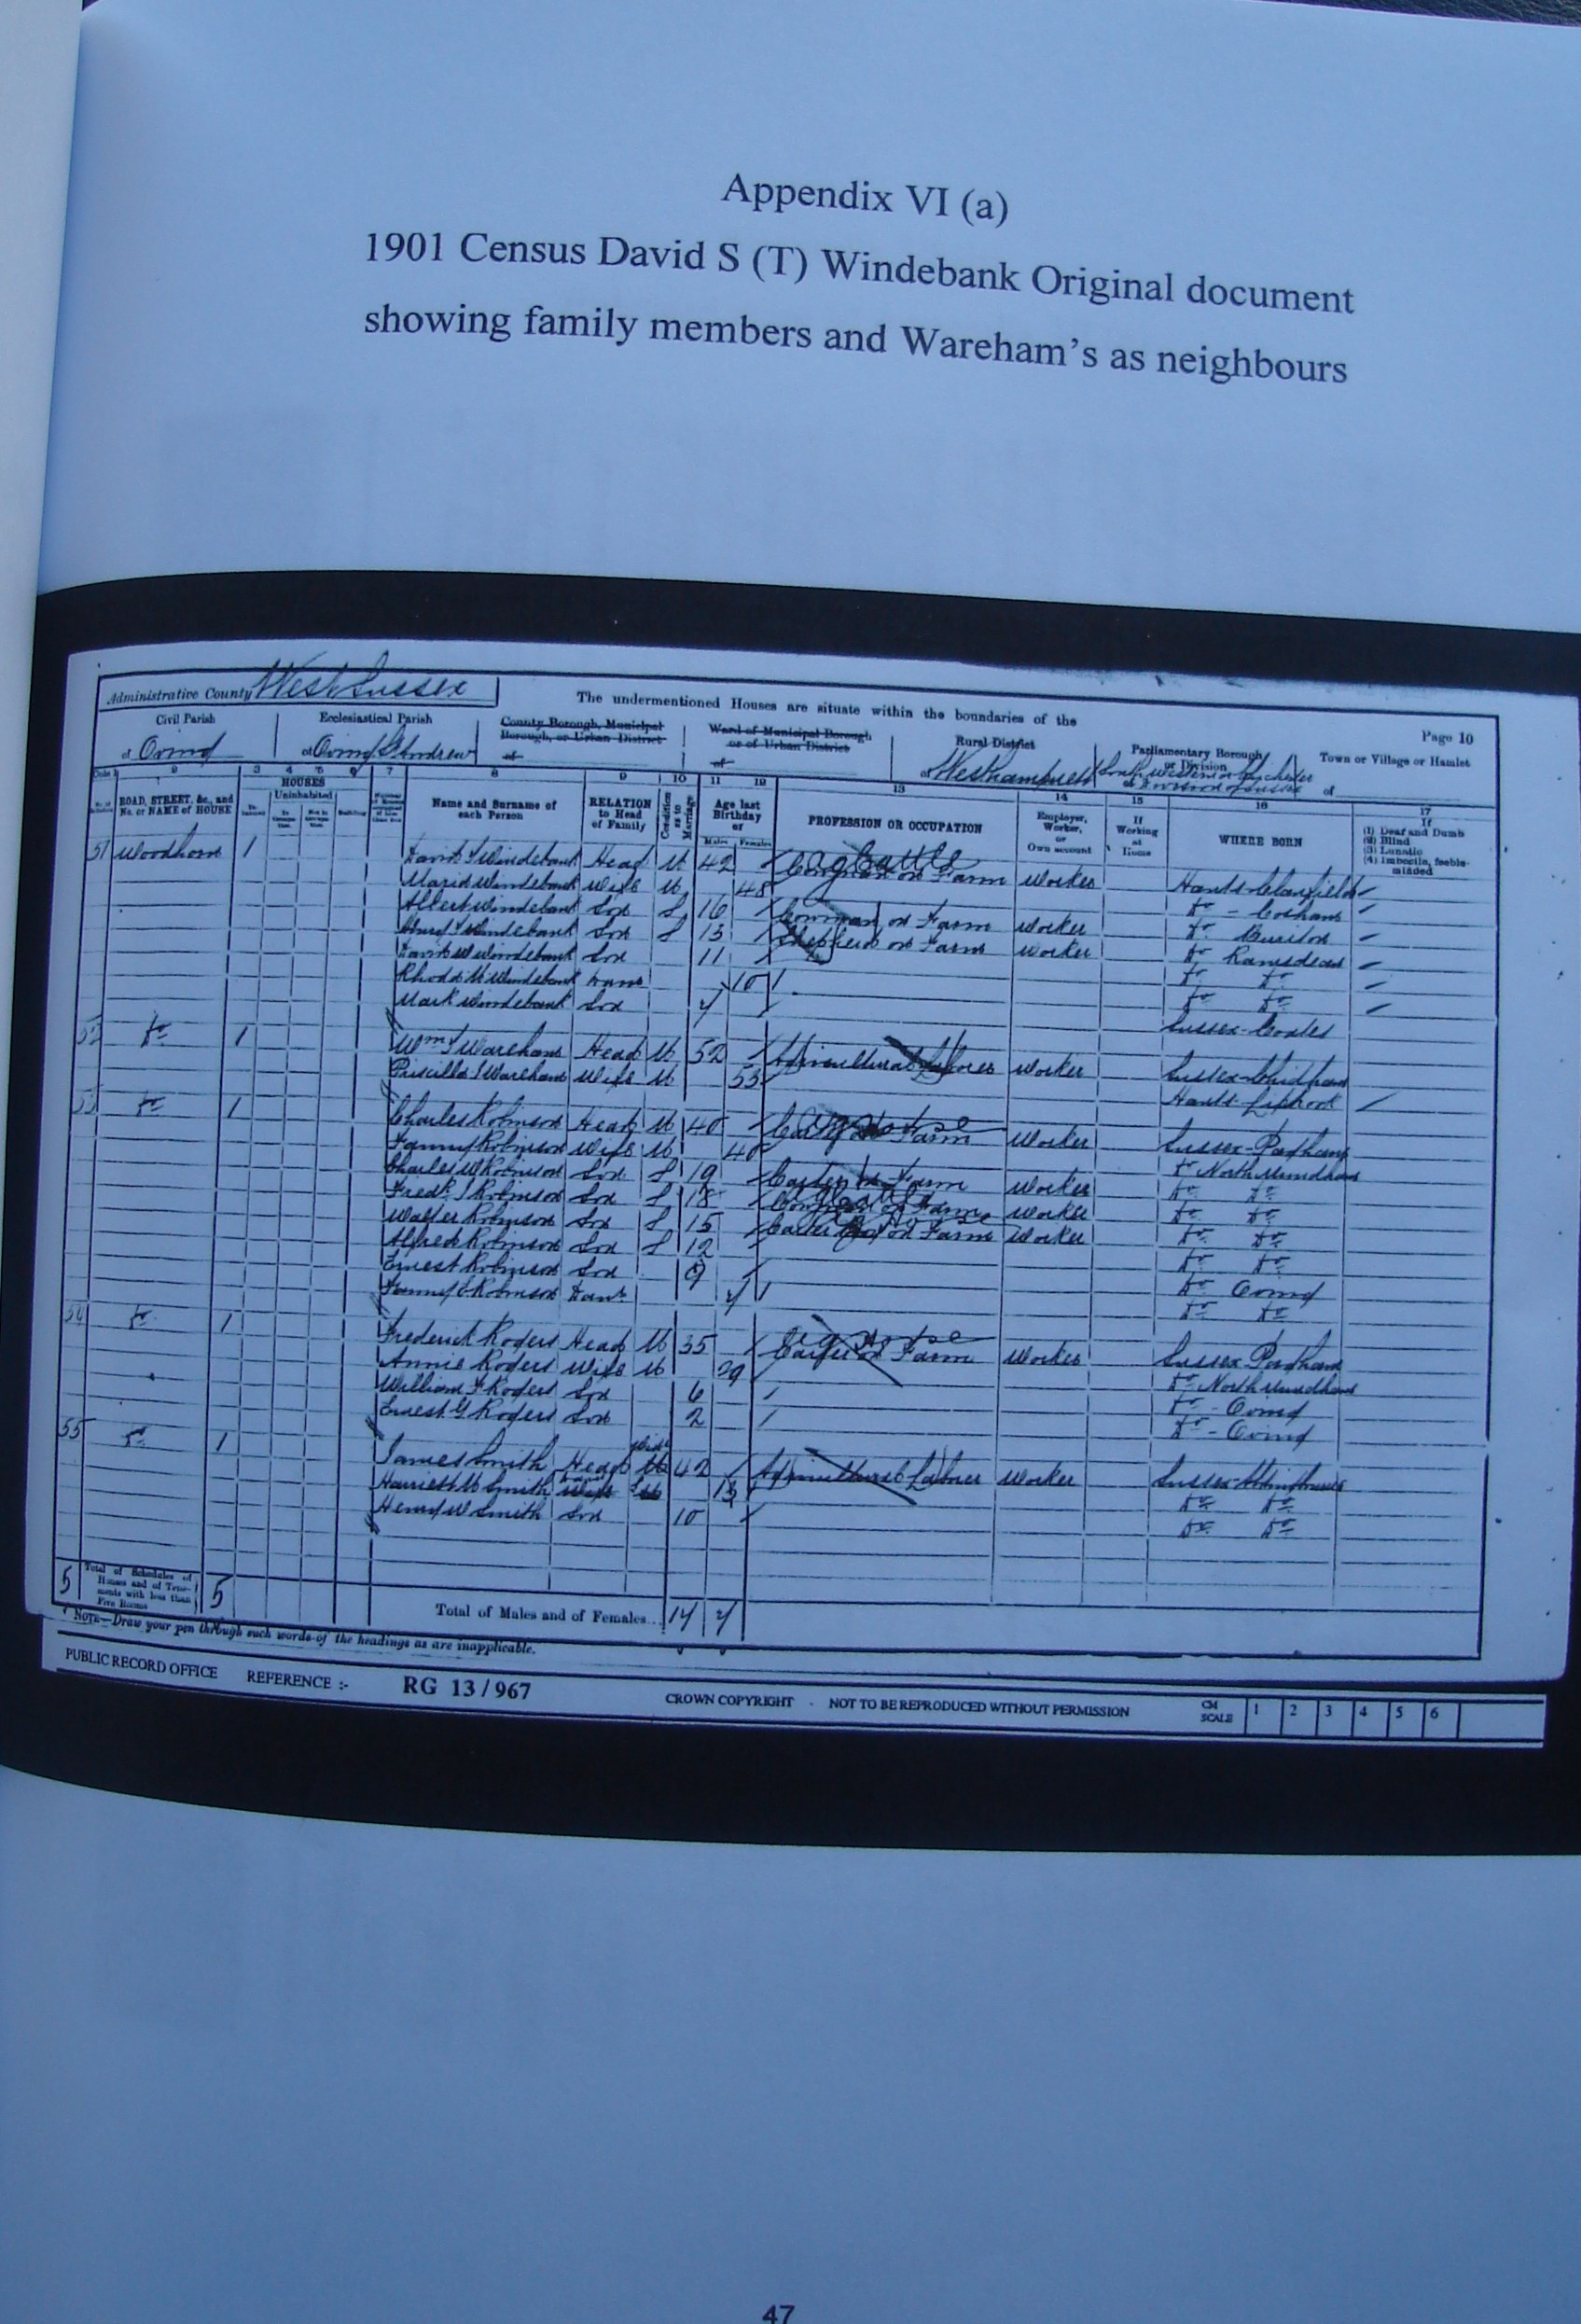 Appendix VI (a)
1901 Census David S (T) Windebank Original document
showing family members and Wareham's as neighbours
Administrative County West Sussex The undermentioned Houses are situate within the boundaries of the
Page 10
Civil Parish Ecclesiastical Parish County Borough, Municipal Borough, or Urban District Ward of Municipal Borough or of Urban District Rural District Parliamentary Borough or Division Town or Village or Hamlet
of Oving of Oving St Andrew of of of Westhampnett of of
2 3 4 5 6 7 8 9 10 11 12 13 14 15 16 17
ROAD, STREET, &c., and No. or NAME of HOUSE HOUSES Uninhabited Name and Surname of each Person RELATION to Head of Family Condition as to Marriage Age last Birthday of Males Females PROFESSION OR OCCUPATION Employer, Worker, or Own account If Working at Home WHERE BORN If (1) Deaf and Dumb (2) Blind (3) Lunatic (4) Imbecile, feeble-minded
51 Woodhorn 1 David S Windebank Head M 42 Cowman on Farm Worker Hants
Maria Windebank Wife M 48 Do - Cosham
Albert Windebank Son S 16 Cowman on Farm Worker Do Buriton
Windebank Son S 13 Shepherd on Farm Worker Do Ramsdean
David W Windebank Son 11 Do Do
Rhoda M Windebank Daur 10 Do Do
Mark Windebank Son 4 Sussex - Coates
52 Do 1 Wm Wareham Head M 52 Agricultural Laborer Worker Sussex - Chidham
Priscilla Wareham Wife M 53 Hants - Liphook
53 Do 1 Charles Robinson Head M 40 Carter on Farm Worker Sussex - Pagham
Fanny Robinson Wife M 40 Do North Mundham
Charles W Robinson Son S 19 Carter on Farm Worker Do Do
Fredk J Robinson Son S 18 Cowman on Farm Worker Do Do
Walter Robinson Son S 15 Carter on Farm Worker Do Do
Alfred Robinson Son S 12 Do Do
Ernest Robinson Son 9 Do Oving
Fanny E Robinson Daur 4 Do Do
54 Do 1 Frederick Rogers Head M 35 Carter on Farm Worker Sussex Pagham
Annie Rogers Wife M 29 Do - North Mundham
William F Rogers Son 6 Do - Oving
Ernest G Rogers Son 2 Do - Oving
55 Do 1 James Smith Head 42 Agricultural Laborer Worker Sussex
Harriett M Smith Do Do
Henry W Smith Son 10 Do Do
5 Total of Schedules of Houses and of Tenements with less than Five Rooms 5 Total of Males and of Females... 17 7
NOTE—Draw your pen through such words of the headings as are inapplicable.
PUBLIC RECORD OFFICE REFERENCE :- RG 13/967 CROWN COPYRIGHT - NOT TO BE REPRODUCED WITHOUT PERMISSION CM SCALE 1 2 3 4 5 6
47